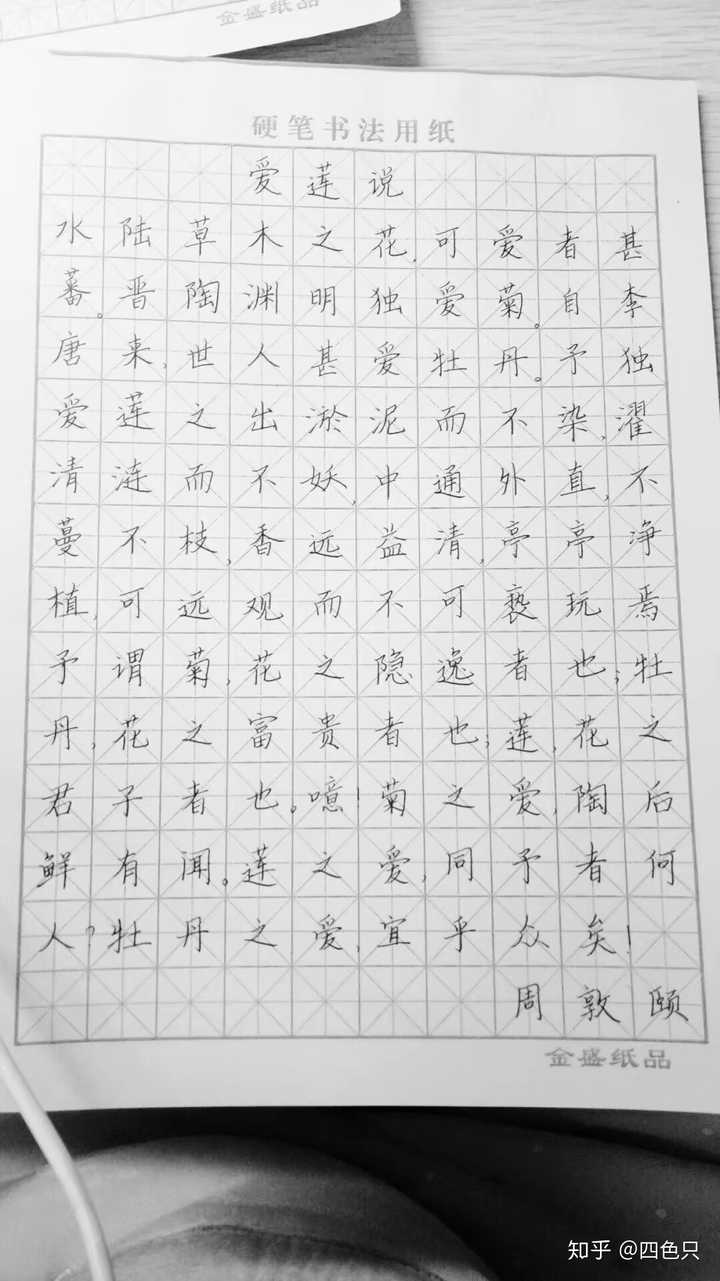 金盛纸品
硬笔书法用纸
爱莲说
水陆草木之花,可爱者甚
蕃。晋陶渊明独爱菊。自李
唐来,世人甚爱牡丹。予独
爱莲之出淤泥而不染,濯
清涟而不妖,中通外直,不
蔓不枝,香远益清,亭亭净
植,可远观而不可亵玩焉
予谓菊,花之隐逸者也;牡
丹,花之富贵者也;莲,花之
君子者也。噫!菊之爱,陶后
鲜有闻。莲之爱,同予者何
人?牡丹之爱,宜乎众矣!
周敦颐
金盛纸品
知乎 @四色只